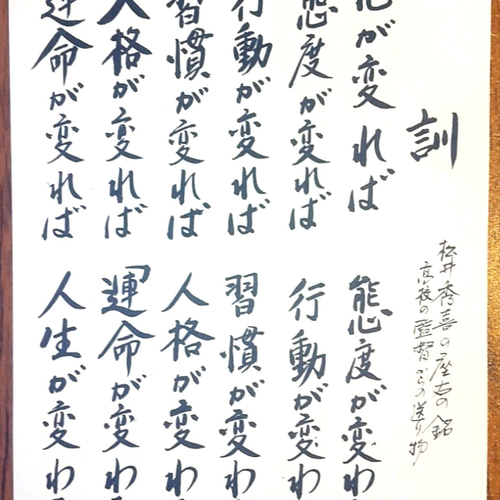 訓
松井秀喜の座右の銘
高校の監督からの送り物
が変れば 態度が変わ
態度が変れば 行動が変わ
行動が変れば 習慣が変わ
習慣が変れば 人格が変わ
人格が変れば 「運命が変わ
運命が変れば 人生が変わ